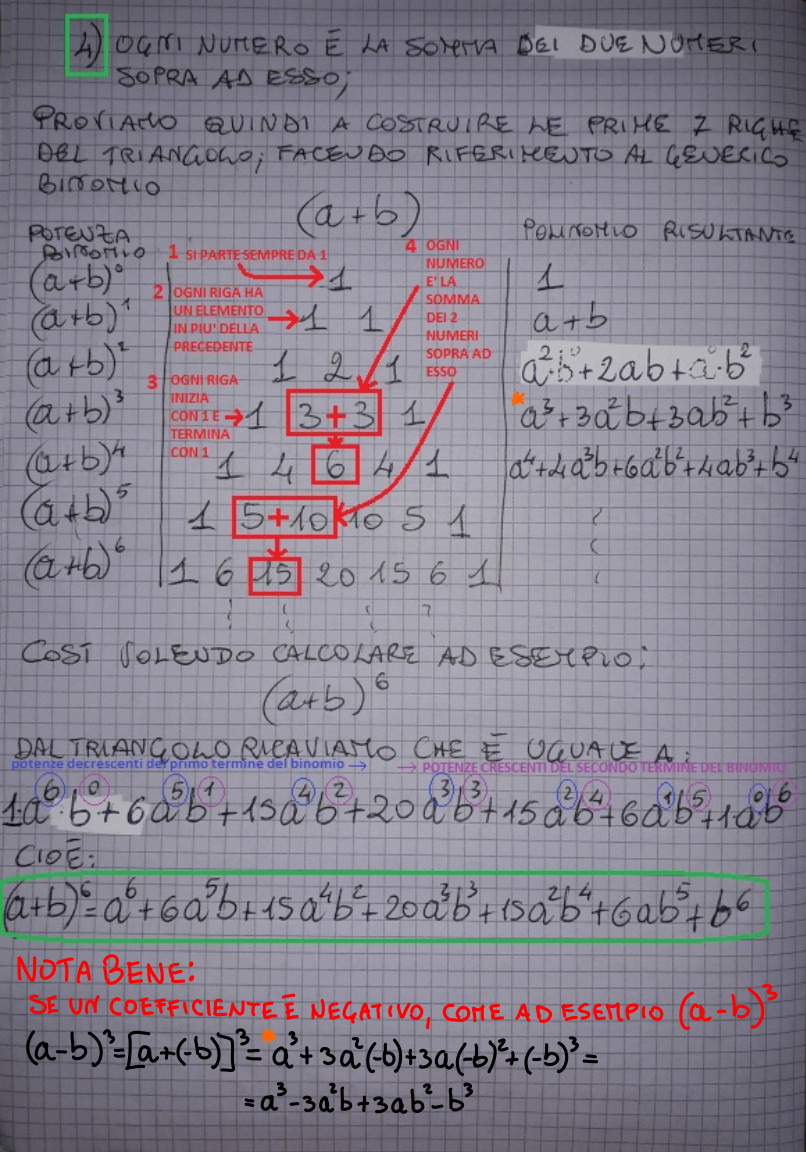 4) OGNI NUMERO È LA SOMMA DEI DUE NUMERI
SOPRA AD ESSO;
PROVIAMO QUINDI A COSTRUIRE LE PRIME 7 RIGHE
DEL TRIANGOLO, FACENDO RIFERIMENTO AL GENERICO
BINOMIO
(a+b)
POTENZA
BINOMIO
POLINOMIO RISULTANTE
1 SI PARTE SEMPRE DA 1
2 OGNI RIGA HA
UN ELEMENTO
IN PIU' DELLA
PRECEDENTE
3 OGNI RIGA
INIZIA
CON 1 E
TERMINA
CON 1
4 OGNI
NUMERO
E' LA
SOMMA
DEI 2
NUMERI
SOPRA AD
ESSO
(a+b)⁰ 1 1
(a+b)¹ 1 1 a+b
(a+b)² 1 2 1 a²·b⁰+2ab+a⁰·b²
(a+b)³ 1 3+3 1 a³+3a²b+3ab²+b³
(a+b)⁴ 1 4 6 4 1 a⁴+4a³b+6a²b²+4ab³+b⁴
(a+b)⁵ 1 5+10 10 5 1
(a+b)⁶ 1 6 15 20 15 6 1
COSÌ VOLENDO CALCOLARE AD ESEMPIO:
(a+b)⁶
DAL TRIANGOLO RICAVIAMO CHE È UGUALE A:
potenze decrescenti del primo termine del binomio → → POTENZE CRESCENTI DEL SECONDO TERMINE DEL BINOMIO
1·a⁶·b⁰+6a⁵b¹+15a⁴b²+20a³b³+15a²b⁴+6a¹b⁵+1a⁰b⁶
CIOÈ:
(a+b)⁶=a⁶+6a⁵b+15a⁴b²+20a³b³+15a²b⁴+6ab⁵+b⁶
NOTA BENE:
SE UN COEFFICIENTE È NEGATIVO, COME AD ESEMPIO (a-b)³
(a-b)³=[a+(-b)]³=a³+3a²(-b)+3a(-b)²+(-b)³=
=a³-3a²b+3ab²-b³